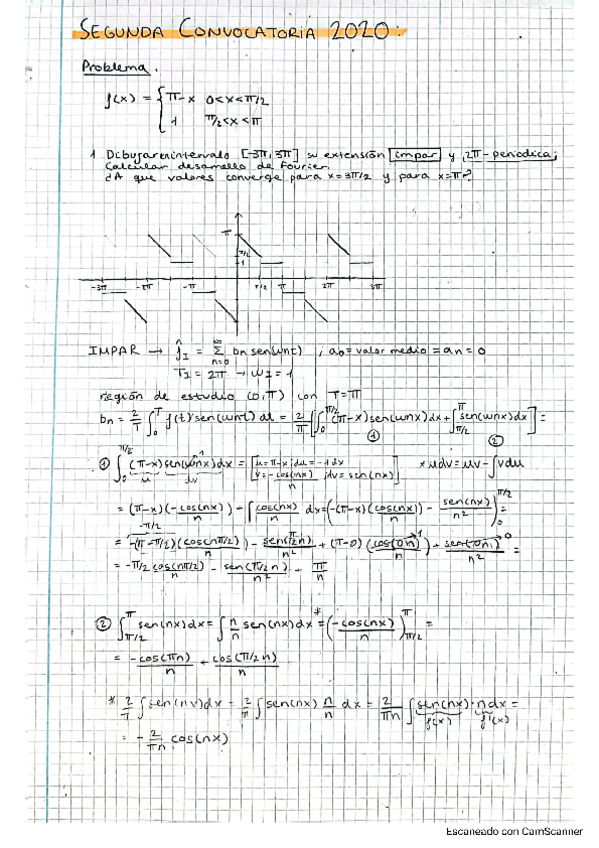 SEGUNDA CONVOCATORIA 2020:
Problema.
f(x) = { π-x 0<x<π/2
1 π/2<x<π
1. Dibujar en intervalo [-3π, 3π] su extensión impar y 2π-periodica;
Calcular desarrollo de Fourier.
¿A que valores converge para x=3π/2 y para x=π?
π
π/2
1
-3π -2π -π π/2 π 2π 3π
IMPAR → f_I = Σ bn sen(wnt) ; a0=valor medio = an = 0
n=0
T_I = 2π → w_I = 1
región de estudio (0,π) con T=π
bn = 2/T ∫₀ᵀ f(t)·sen(wnt) dt = 2/π [∫₀^{π/2} (π-x)sen(wnx)dx + ∫_{π/2}^{π} sen(wnx)dx] =
① ②
① ∫₀^{π/2} (π-x) sen(wnx)dx = [u=π-x ; du=-1dx * udv=uv-∫vdu
u dv v=-cos(nx)/n ; dv=sen(nx)]
= (π-x)(-cos(nx)/n) - ∫cos(nx)/n dx = (-(π-x)(cos(nx)/n) - sen(nx)/n²)₀^{π/2} =
-π/2
= -(π-π/2)(cos(nπ/2)/n) - sen(π/2 n)/n² + (π-0)(cos(0n)/n) + sen(0n)/n² =
= -π/2 cos(nπ/2)/n - sen(π/2 n)/n² + π/n
② ∫_{π/2}^{π} sen(nx)dx = ∫ n/n sen(nx)dx =* (-cos(nx)/n)_{π/2}^{π} =
= -cos(πn)/n + cos(π/2 n)/n
* 2/π ∫sen(nx)dx = 2/π ∫sen(nx) n/n dx = 2/πn ∫sen(nx)·n dx =
f(x) f'(x)
= -2/πn cos(nx)
Escaneado con CamScanner